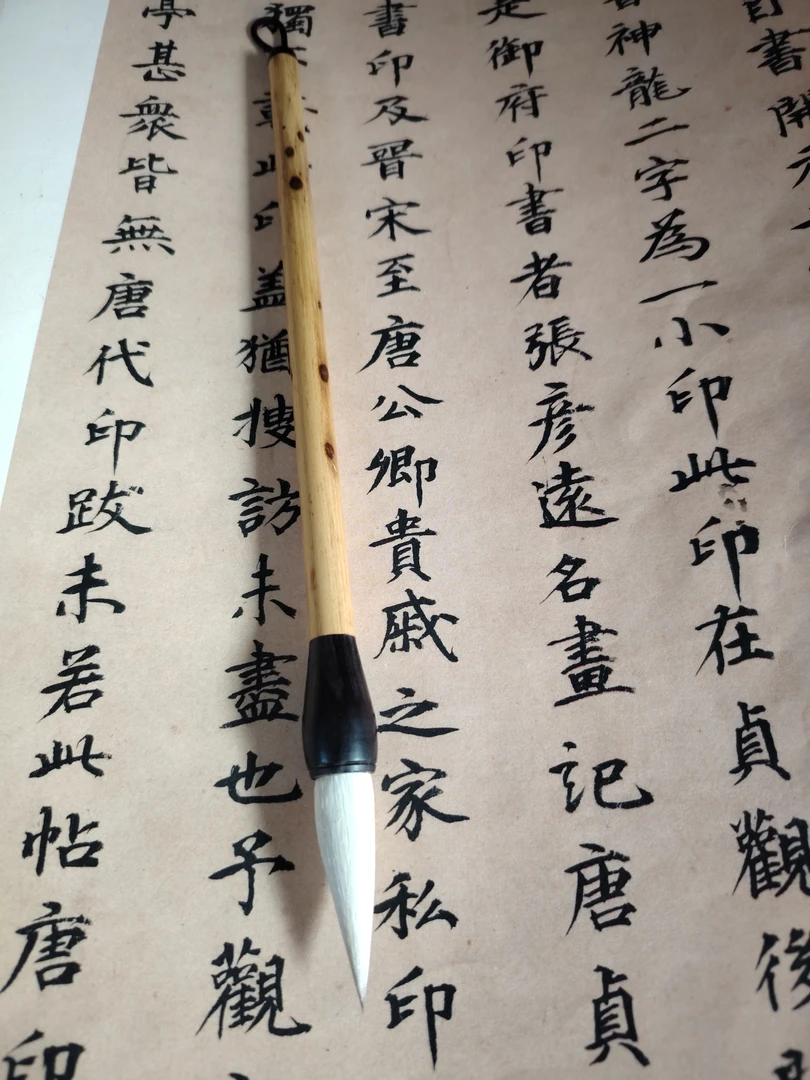 書開
神龍二字為一小印此印在貞觀後
是御府印書者張彦遠名畫記唐貞
書印及晉宋至唐公卿貴戚之家私印
獨此印蓋猶搜訪未盡也予觀
亭甚衆皆無唐代印跋未若此帖唐印